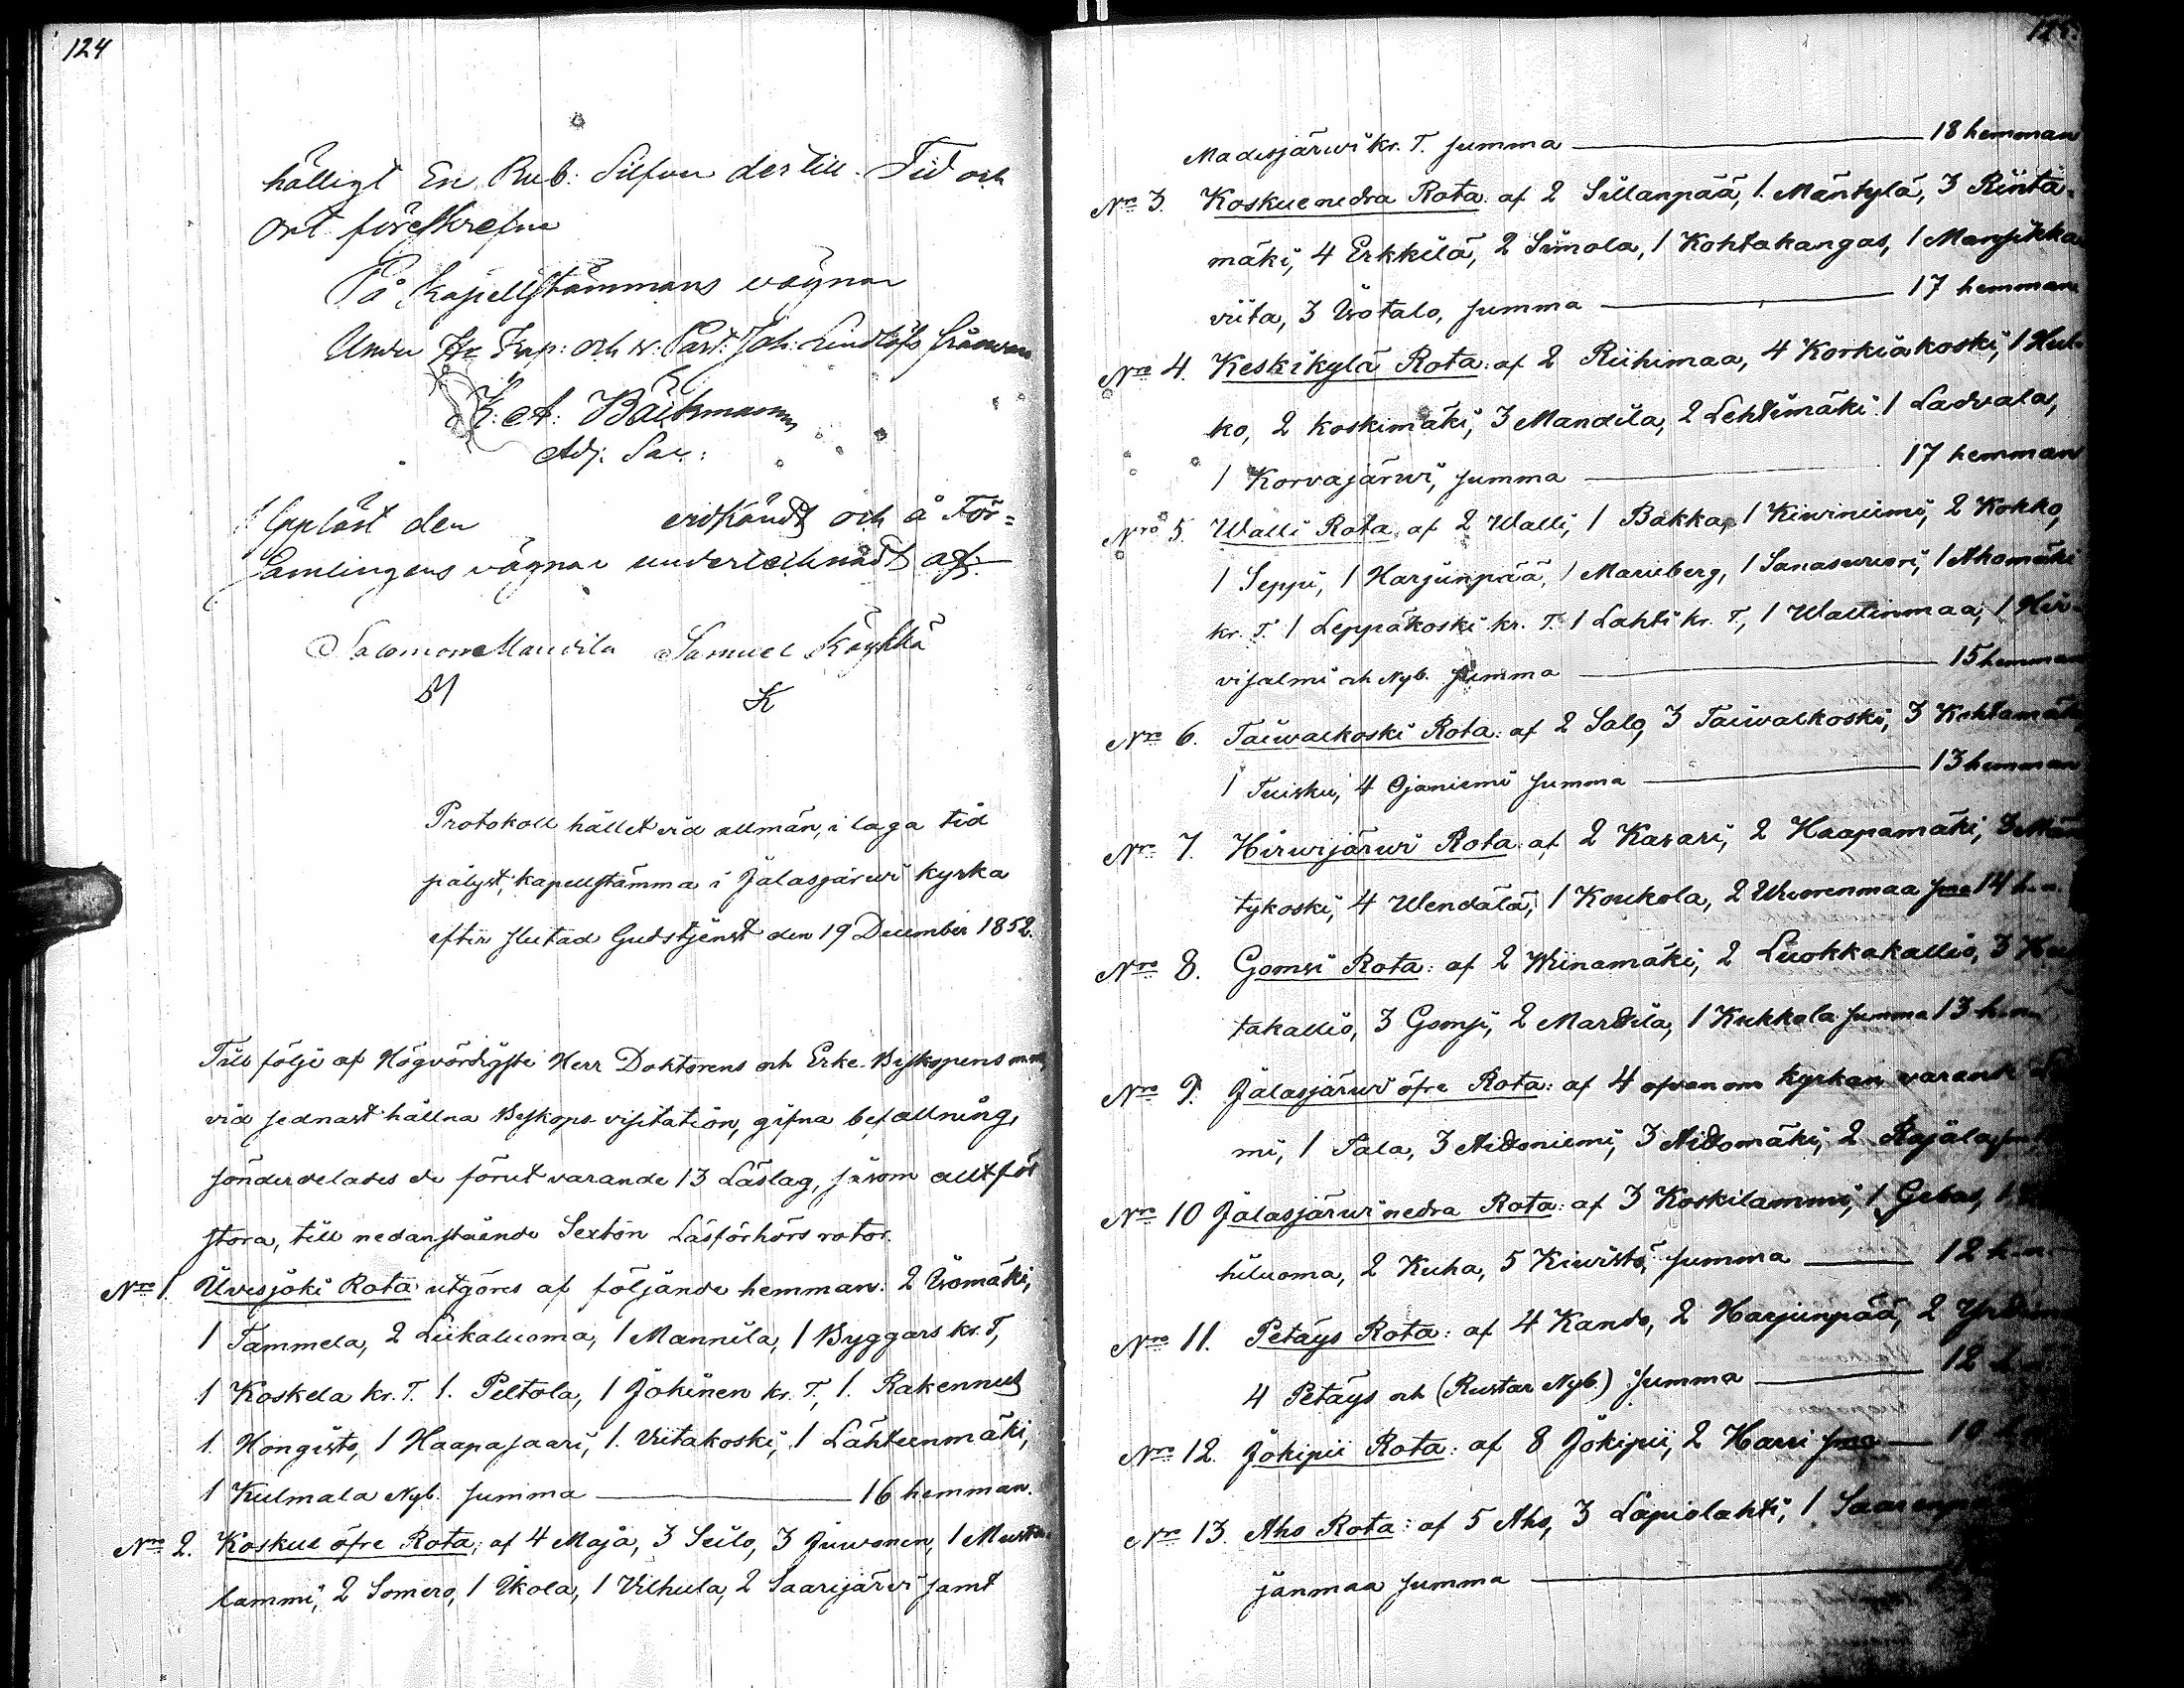 124
hälligt En Rub: Silfver der till. Tid och
Ort föreskrefne
På Kapellstämmans vägnar
Under Hr Kap: och v: Past: Joh: Lindlöfs frånvaro
K: A: Backman
Adj: Sac:
Uppläst den erkändt och å För=
samlingens vägnar undertecknadt af
Salomon Mandila Samuel Köykkä
M K
Protokoll hållet vid allmän, i laga tid
pålyst, kapellstämma i Jalasjärwi kyrka
efter slutad Gudstjenst den 19 December 1852.
Till följe af Högvördigste Herr Doktorens och Erke-Biskopens
vid sednast hållna Biskops-visitation, gifna befallning,
sönderdelades de förut varande 13 Läslag, såsom alltför
stora, till nedanstående Sexton Läsförhörs rotor.
Nro 1. Ilvesjoki Rota utgöres af följande hemman: 2 Isomäki,
1 Tammela, 2 Liikaluoma, 1 Mannila, 1 Byggars kr. T,
1 Koskela kr. T. 1. Peltola, 1 Jokinen kr. T, 1. Rakennus
1. Hongisto, 1 Haapasaari, 1. Viitakoski, 1 Lähteenmäki,
1 Kulmala Nyb. Summa 16 hemman.
Nro 2. Koskue öfre Rota, af 4 Maja, 3 Seilo, 3 Juwonen, 1 Musta-
lammi, 2 Somero, 1 Ikola, 1 Vilhula, 2 Saarijärvi samt
125.
Madesjärwi kr. T. Summa 18 hemman
Nro 3. Koskue nedra Rota: af 2 Sillanpää, 1. Mäntylä, 3 Rinta-
mäki, 4 Erkkilä, 2 Simola, 1 Kohtakangas, 1 Mansikka
viita, 3 Isotalo, Summa 17 hemman
Nro 4. Keskikylä Rota: af 2 Riihimaa, 4 Korkiakoski, 1
ko, 2 Koskimäki, 3 Mandila, 2 Lehtimäki 1 Ladvala,
1 Korvajärwi, Summa 17 hemman
Nro 5. Walli Rota, af 2 Walli, 1 Bakka, 1 Kiwiniemi, 2 Kokko,
1 Seppi, 1 Harjunpää, 1 Marieberg, 1 Sanasvuori, 1 Ahomäki
kr. T. 1 Leppäkoski kr. T. 1 Lahti kr. T, 1 Wallinmaa, 1 Hir-
visalmi och Nyb. Summa 15 hemman
Nro 6. Taiwalkoski Rota: af 2 Salo, 3 Taiwalkoski, 3 Kohtamäki
1 Tuisku, 4 Ojaniemi Summa 13 hemman
Nro 7. Hirwijärwi Rota: af 2 Kasari, 2 Haapamäki, 3 Män
tykoski, 4 Wendälä, 1 Koukola, 2 Wuorenmaa Sma 14 h-n.
Nro 8. Gomsi Rota: af 2 Wiinamäki, 2 Luokkakallio, 3
takallio, 3 Gomsi, 2 Mardila, 1 Kukkola Summa 13 h-n
Nro 9. Jalasjärwi öfre Rota: af 4 ofvanom kyrkan varande
mi, 1 Sala, 3 Aidoniemi, 3 Aidomäki, 2 Rajala,
Nro 10 Jalasjärwi nedra Rota: af 3 Koskilammi, 1 Gebas, 1.
hiluoma, 2 Kuha, 5 Kiwistö, Summa 12 h-n
Nro 11. Petäys Rota: af 4 Kando, 2 Harjunpää, 2
4 Petäys och (Rustar Nyb.) Summa 12
Nro 12. Jokipii Rota: af 8 Jokipii, 2 Harri Sma 10
Nro 13. Aho Rota: af 5 Aho, 3 Lapiolahti, 1
janmaa Summa